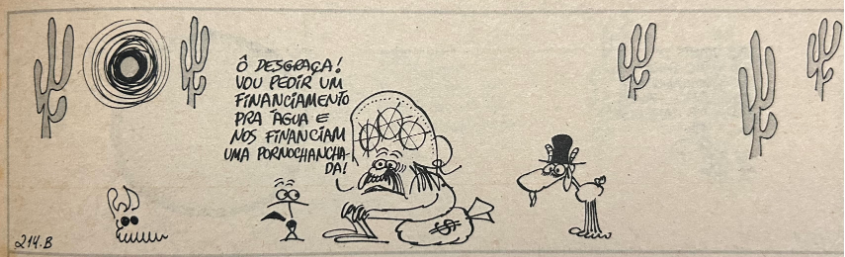 Ô DESGRAÇA!
VOU PEDIR UM
FINANCIAMENTO
PRA ÁGUA E
NOS FINANCIAM
UMA PORNOCHANCHA-
DA!
$
214.B